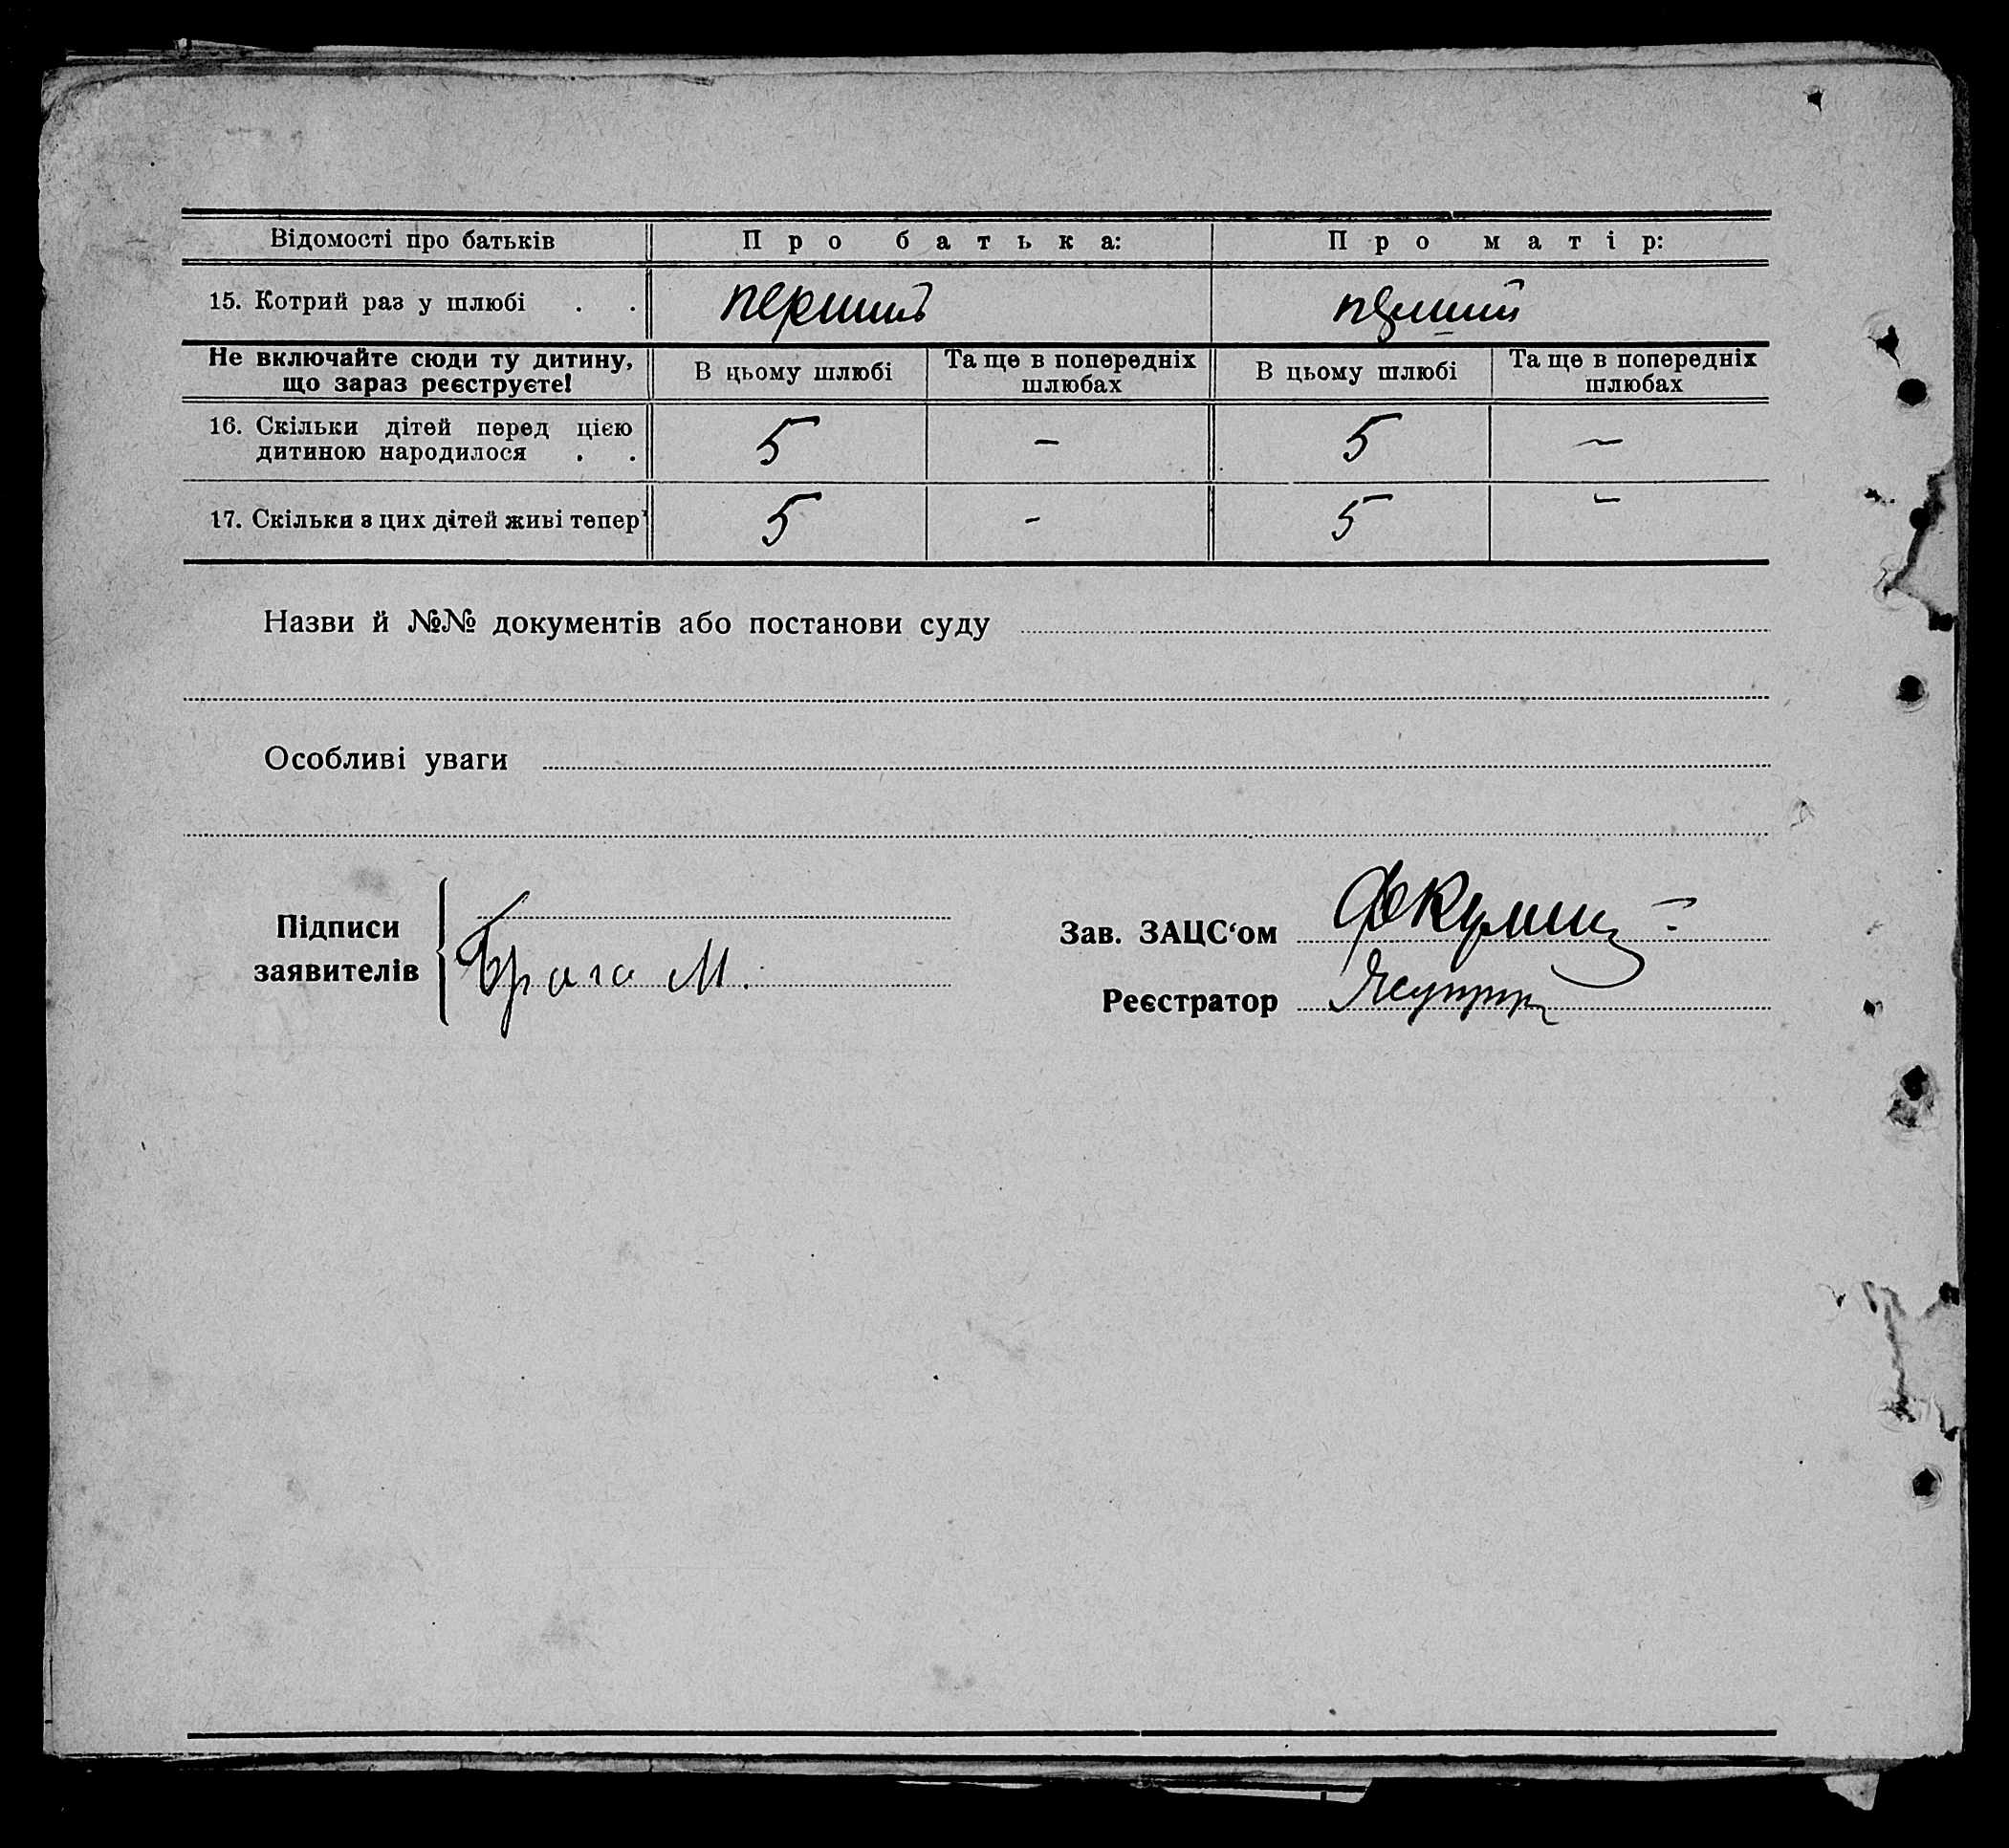 Відомості про батьків Про батька: Про матір:
15. Котрий раз у шлюбі . . перший перший
Не включайте сюди ту дитину, що зараз реєструєте! В цьому шлюбі Та ще в попередніх шлюбах В цьому шлюбі Та ще в попередніх шлюбах
16. Скільки дітей перед цією
дитиною народилося . . 5 – 5 –
17. Скільки з цих дітей живі тепер 5 - 5 -
Назви й №№ документів або постанови суду
Особливі уваги
Підписи
заявителів
Брага М.
Зав. ЗАЦС‘ом
Реєстратор